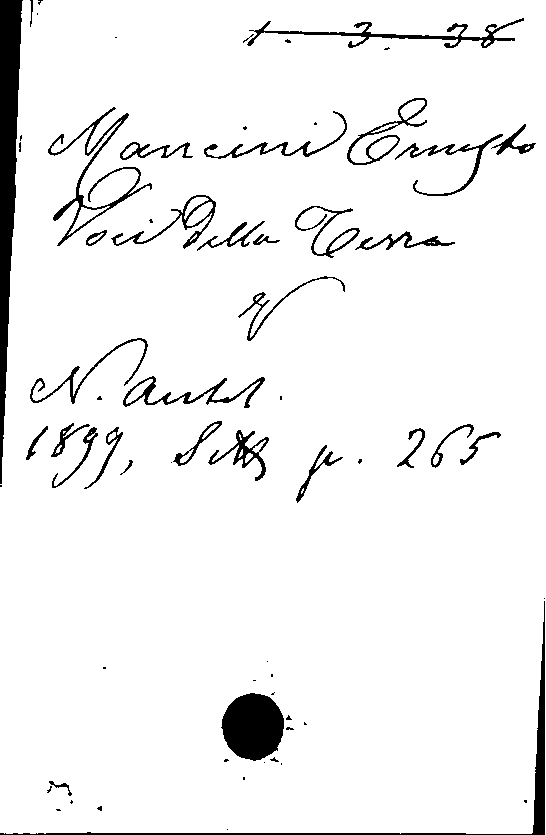 1. 3. 38
Mancini Ernesto
Voci della Terra
N. Antol.
1899, Sett p. 265